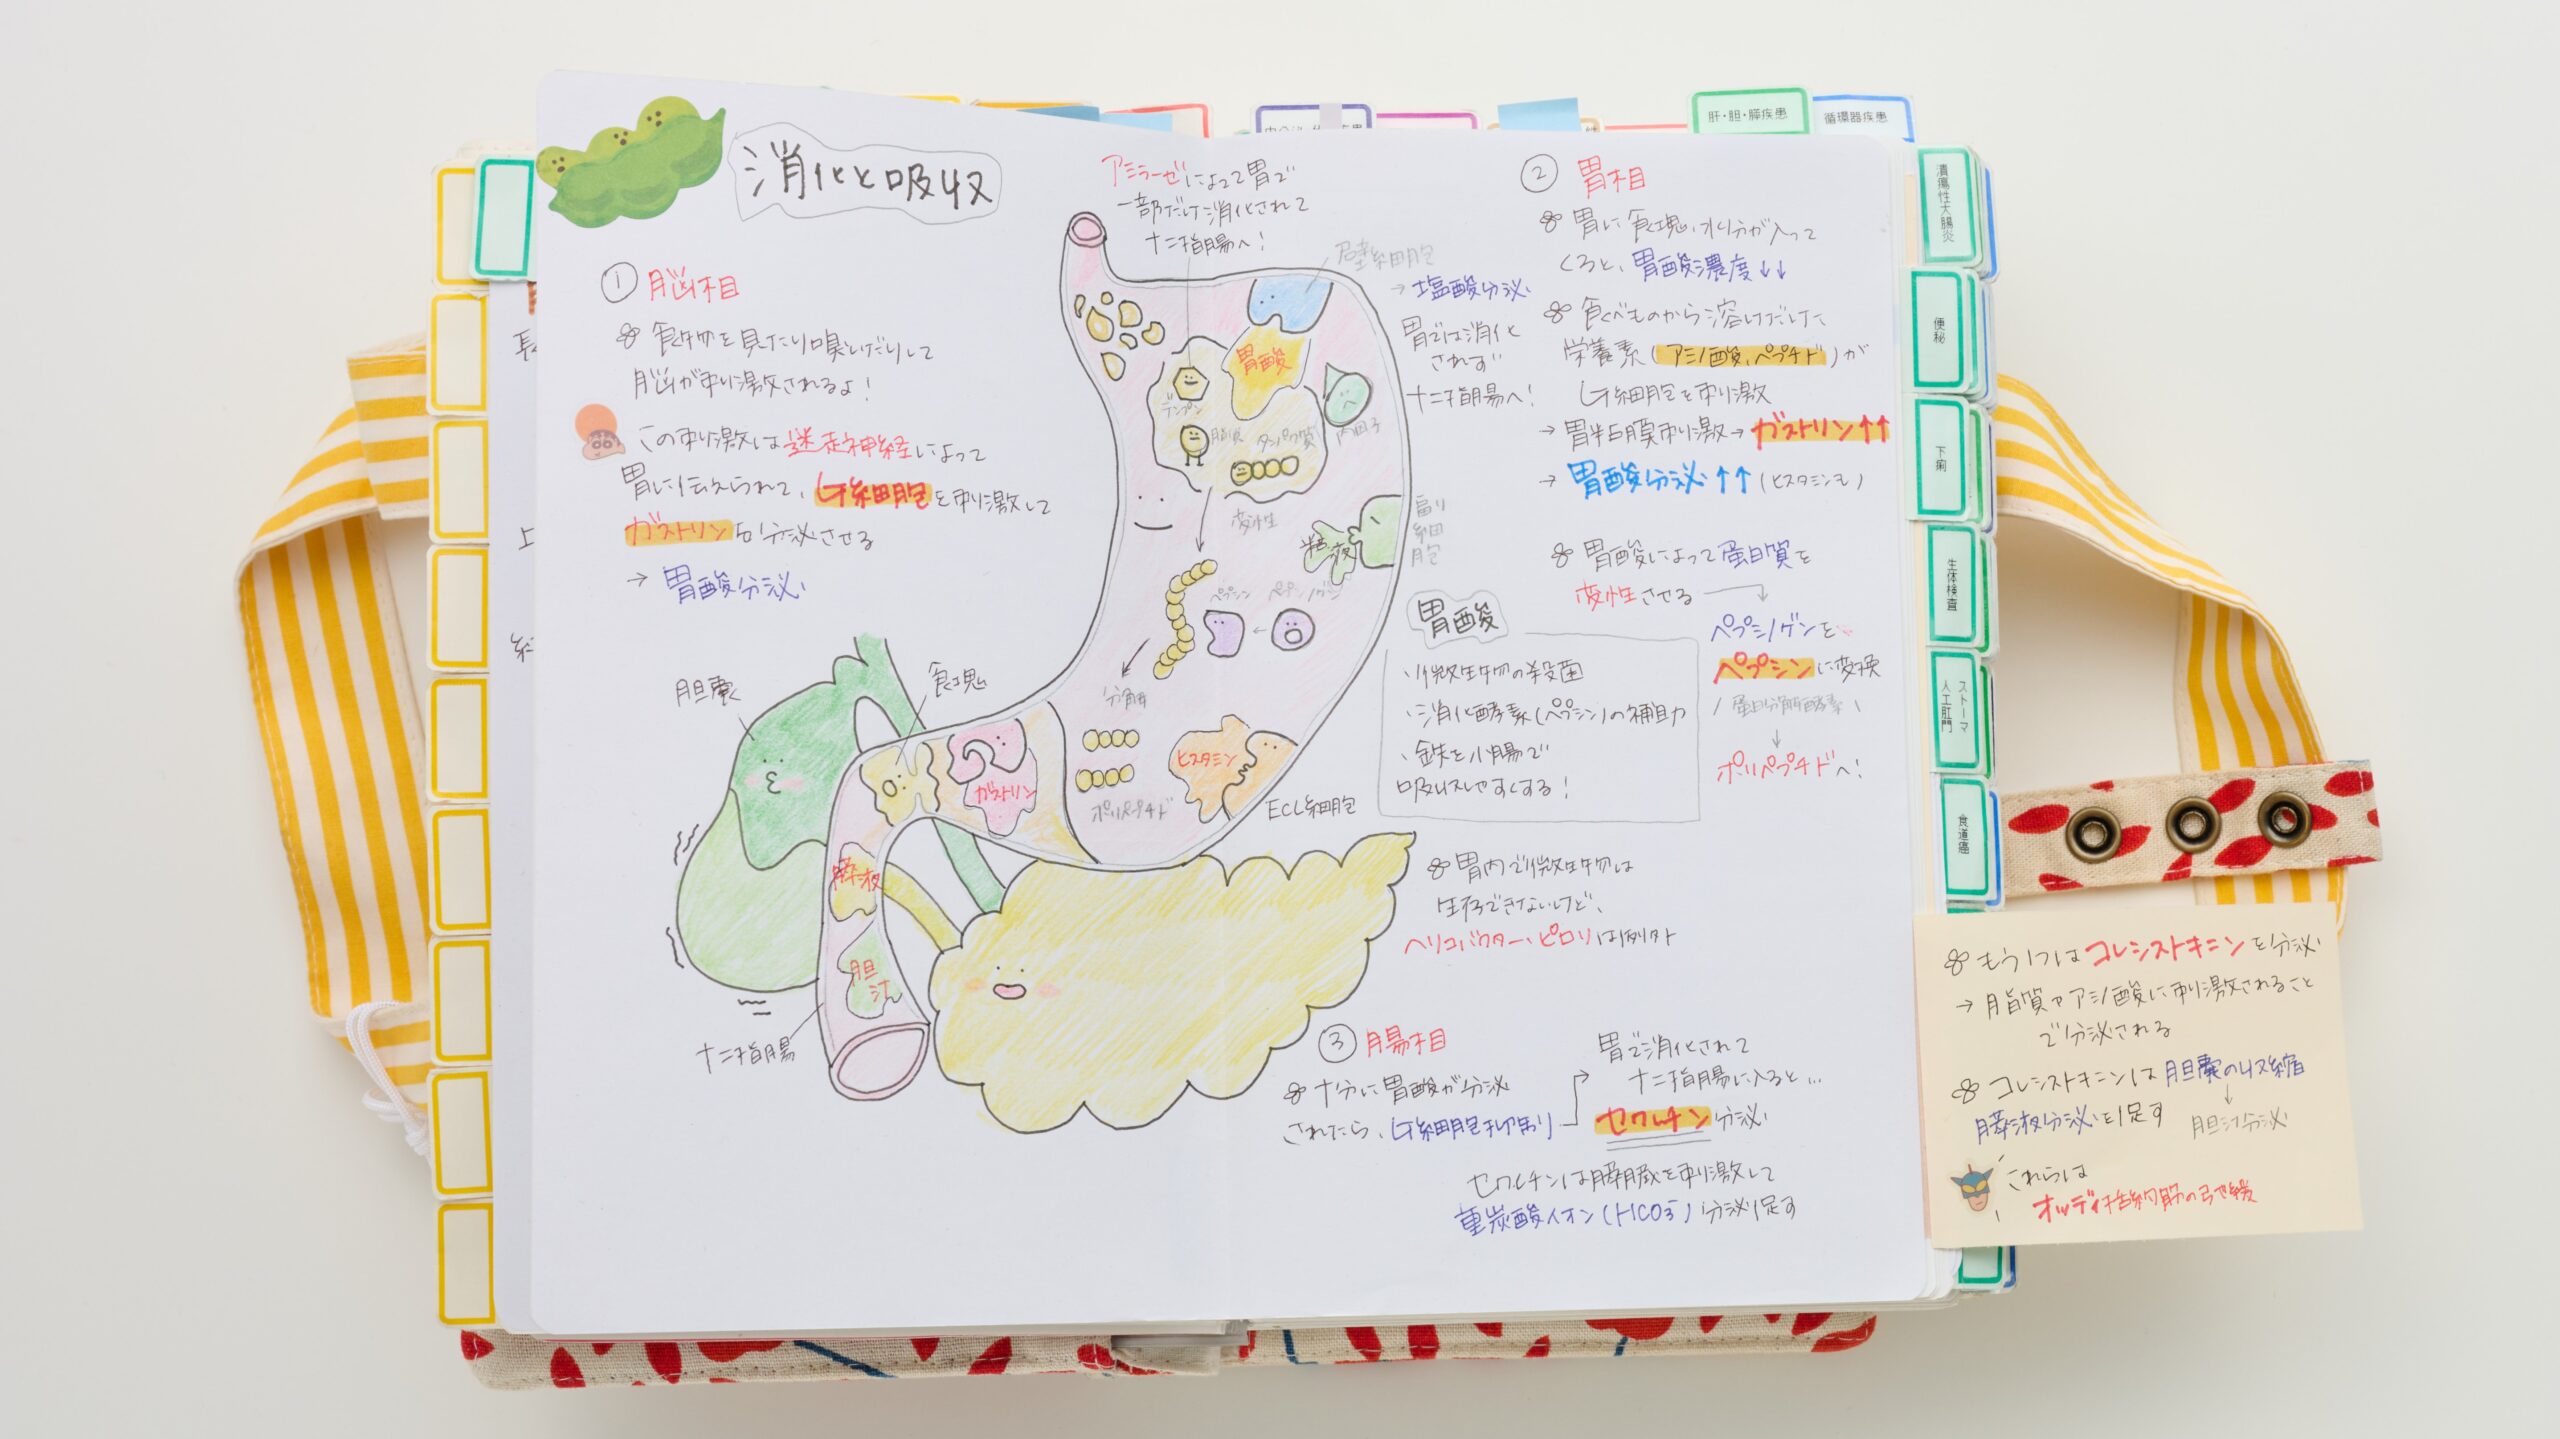 消化と吸収
① 脳相
食物を見たり嗅いだりして
脳が刺激されるよ！
この刺激は迷走神経によって
胃に伝えられて、G細胞を刺激して
ガストリンを分泌させる
→ 胃酸分泌
アミラーゼによって胃で
一部だけ消化されて
十二指腸へ！
壁細胞
→ 塩酸分泌
胃では消化
されず
十二指腸へ！
胃酸
デンプン
脂質
タンパク質
内因子
変性
副細胞
粘液
ペプシン
ペプシノゲン
分解
ポリペプチド
ヒスタミン
ECL細胞
ガストリン
食塊
胆嚢
膵液
胆汁
十二指腸
② 胃相
胃に食塊、水分が入って
くると、胃酸濃度↓↓
食べものから溶けだした
栄養素(アミノ酸、ペプチド)が
G細胞を刺激
→ 胃粘膜刺激→ガストリン↑↑
→ 胃酸分泌↑↑(ヒスタミンも)
胃酸によって蛋白質を
変性させる
ペプシノゲンを
ペプシンに変換
蛋白分解酵素
↓
ポリペプチドへ！
胃酸
・微生物の殺菌
・消化酵素(ペプシン)の補助
・鉄を小腸で
吸収しやすくする！
胃内で微生物は
生存できないけど、
ヘリコバクター・ピロリは例外
③ 腸相
十分に胃酸が分泌
されたら、G細胞抑制
胃で消化されて
十二指腸に入ると…
セクレチン分泌
セクレチンは膵臓を刺激して
重炭酸イオン(HCO3-)分泌促す
もう1つはコレシストキニンを分泌
→ 脂質やアミノ酸に刺激されること
で分泌される
コレシストキニンは胆嚢の収縮
↓
膵液分泌を促す
胆汁分泌
これらは
オッディ括約筋の弛緩
肝・胆・膵疾患
循環器疾患
潰瘍性大腸炎
便秘
下痢
生体検査
ストーマ
人工肛門
食道癌